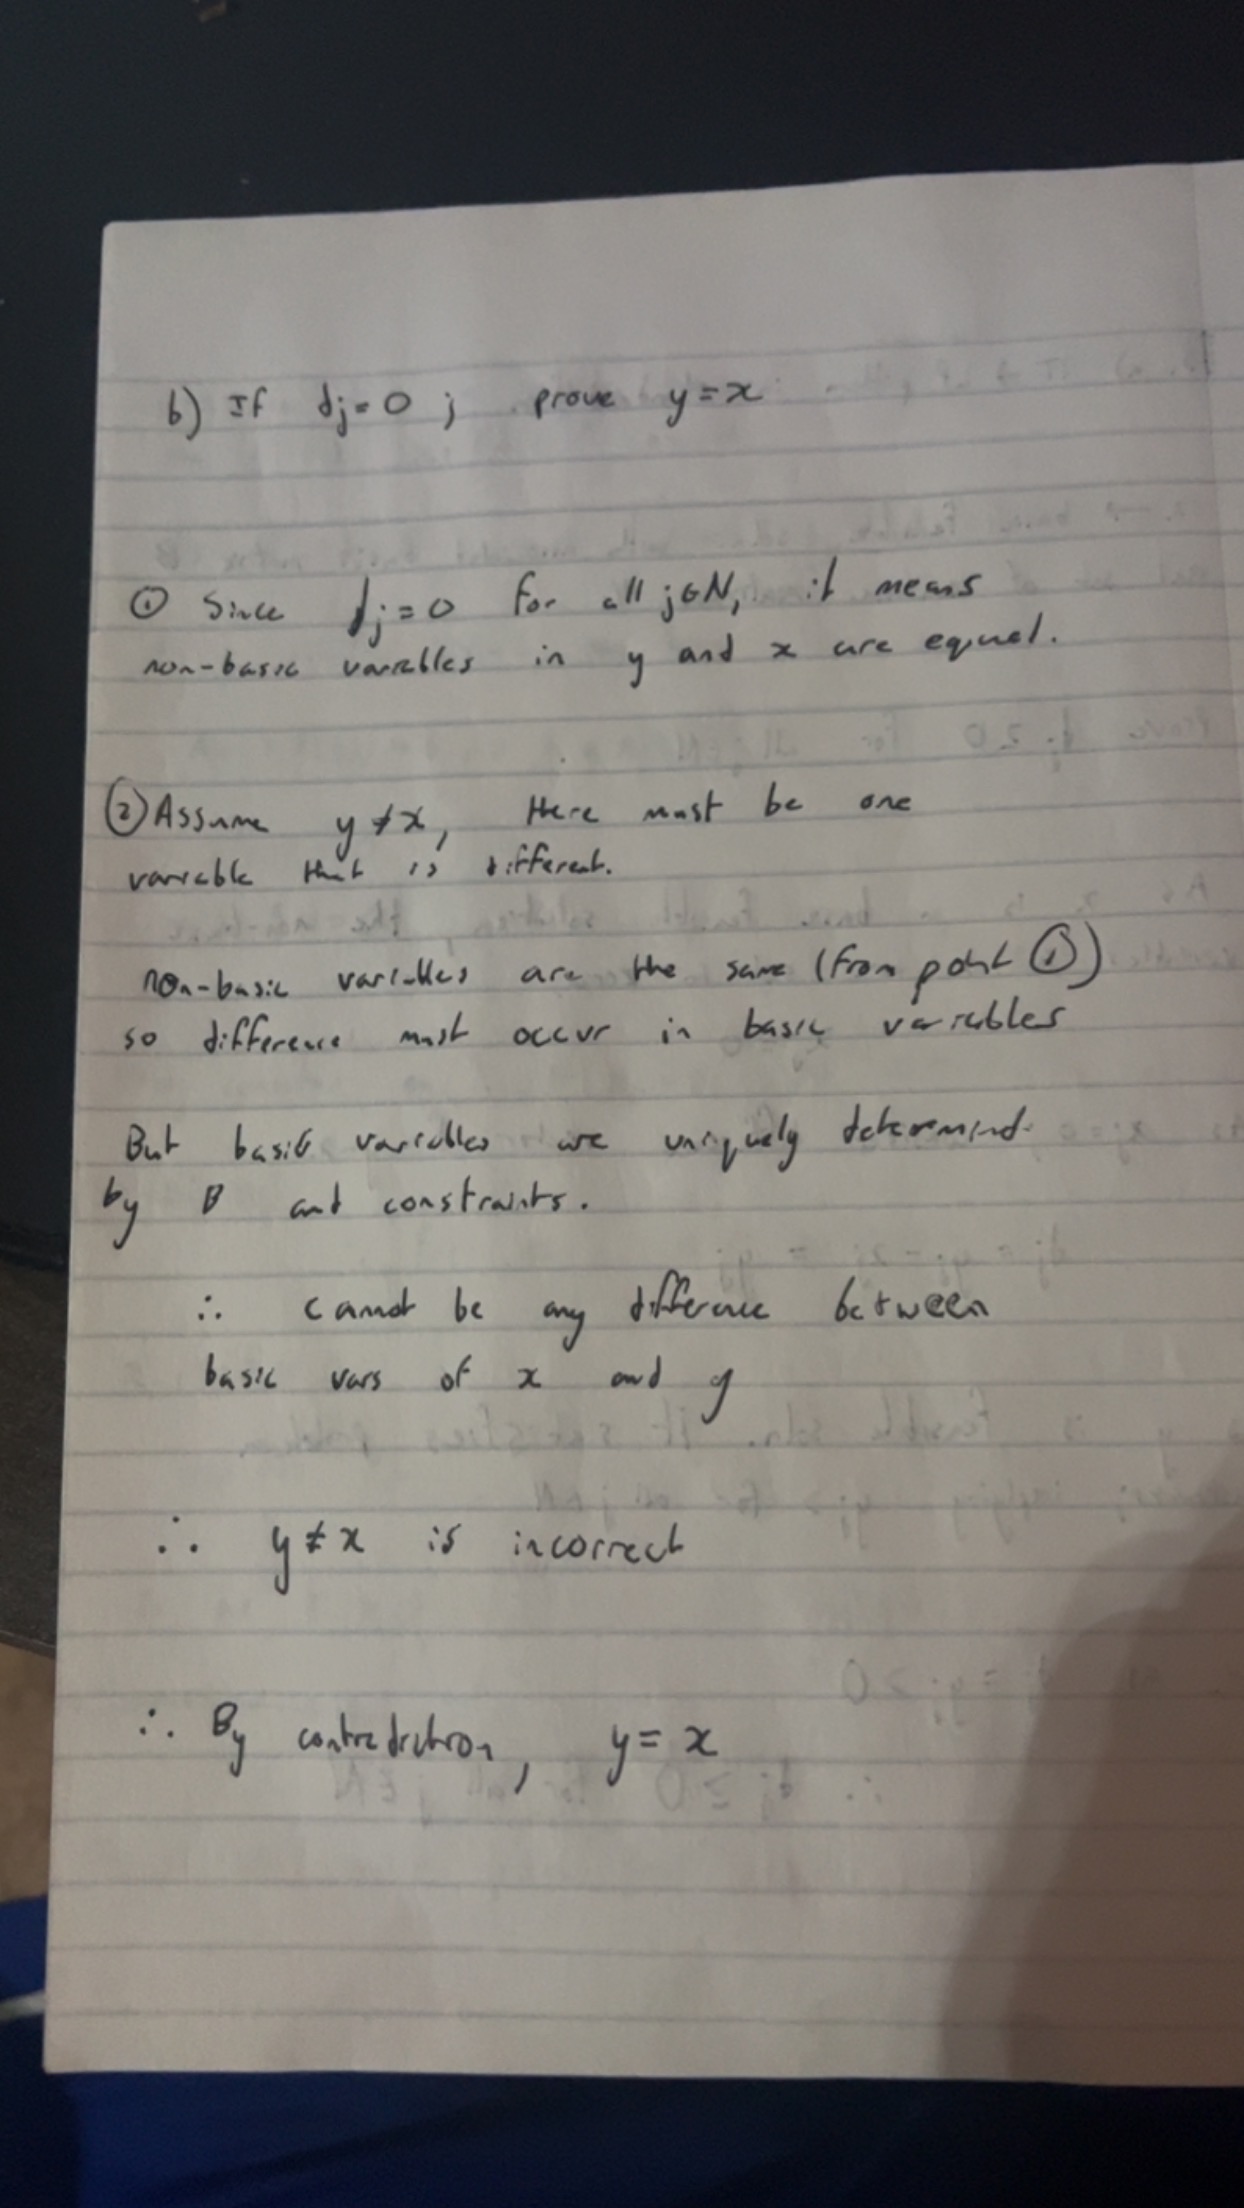 b) If dj=0 ; prove y=x
① Since dj=0 for all j∈N, it means
non-basic variables in y and x are equal.
② Assume y≠x, there must be one
variable that is different.
non-basic variables are the same (from point ①)
so difference must occur in basic variables
But basic variables are uniquely determind
by B and constraints.
∴ cannot be any difference between
basic vars of x and y
∴ y≠x is incorrect
∴ By contradiction, y=x